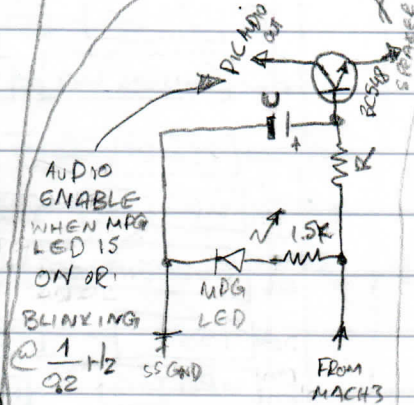 PIC AUDIO
OUT
SPEAKER
BC548
C
+
R
AUDIO
ENABLE
WHEN MPG
LED IS
ON OR
BLINKING
@ 1/0.2 Hz
1.5K
MPG
LED
5V GND
FROM
MACH3